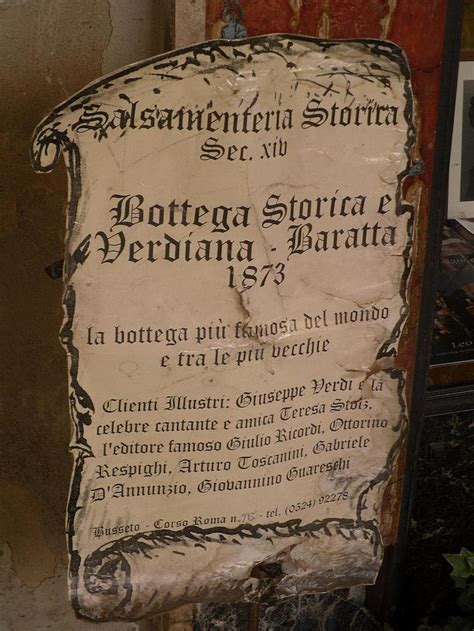 Salsamenteria Storica
Sec. xiv
Bottega Storica e
Verdiana - Baratta
1873
la bottega più famosa del mondo
e tra le più vecchie
Clienti Illustri: Giuseppe Verdi e la
celebre cantante e amica Teresa Stolz,
l'editore famoso Giulio Ricordi, Ottorino
Respighi, Arturo Toscanini, Gabriele
D'Annunzio, Giovannino Guareschi
Busseto - Corso Roma n.76 - tel. (0524) 92278
Leo